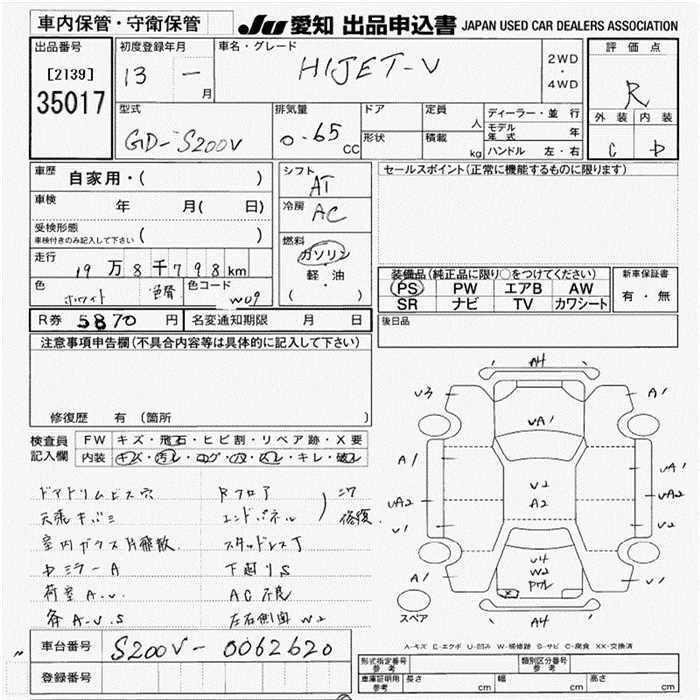 車内保管・守衛保管
JU 愛知 出品申込書 JAPAN USED CAR DEALERS ASSOCIATION
出品番号
[2139]
35017
初度登録年月
13 一 月
車名・グレード
HIJET-V
2WD
・
4WD
評価点
R
外装 内装
C D
型式
GD-S200V
排気量
0.65 CC
ドア
形状
定員 人
積載 kg
ディーラー・並行
モデル年式 年
ハンドル 左・右
車歴 自家用・( )
車検 年 月( 日)
受検形態
車検付きのみ記入して下さい ( )
走行 19万8千798km
色 ホワイト 色替 色コード W09
シフト
AT
冷房
AC
燃料
ガソリン
軽・油
( )
セールスポイント(正常に機能するものに限ります)
装備品(純正品に限り○をつけてください)
PS PW エアB AW
SR ナビ TV カワシート
新車保証書
有・無
R券 5870 円 名変通知期限 月 日
後日品
注意事項申告欄(不具合内容等は具体的に記入して下さい)
修復歴 有 (箇所 )
検査員記入欄
FW キズ・飛石・ヒビ割・リペア跡・X要
内装 キズ・汚レ・コゲ・穴・スレ・キレ・破レ
ドアトリムビス穴 Rフロア
天張キバミ エンドパネル ) 修復
室内ガラス片飛散 スタッドレスT
中ミラーA 下廻りS
荷室A.U. AC不良
各A.U.S 左右側面W2
A4
U3 A1
UA1
A1 UA1
U2
A2
UA2 UA2
U1 U2
U4
W2
A1 U1
スペア
A4
A-キズ E-エクボ U-凹み W-補修跡 S-サビ C-腐食 XX-交換済
車台番号 S200V-0062620
登録番号
形式指定番号 参考
類別区分番号 参考
車庫証明用 参考
長さ cm 幅 cm 高さ cm